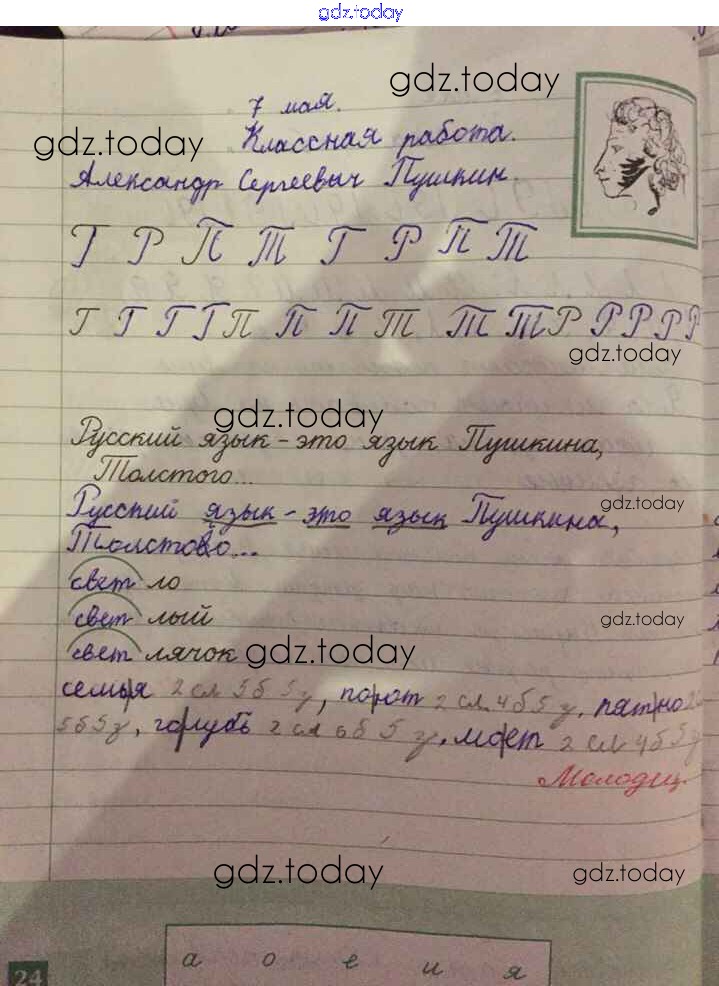 gdz.today
7 мая.
gdz.today
Классная работа.
gdz.today
Александр Сергеевич Пушкин.
Г Р П Т Г Р П Т
Г Г Г Г П П П Т Т Т Р Р Р Р Р
gdz.today
gdz.today
Русский язык - это язык Пушкина,
Толстого...
Русский язык - это язык Пушкина,
gdz.today
Толстово...
свет ло
свет лый
gdz.today
свет лячок gdz.today
семья 2 сл 5б 5з, порот 2 сл 4б 5з, пятно 2
5б5з, голубь 2 сл 6б 5з, моет 2 сл 4б 5з
Молодец
gdz.today
gdz.today
а о е и я
24